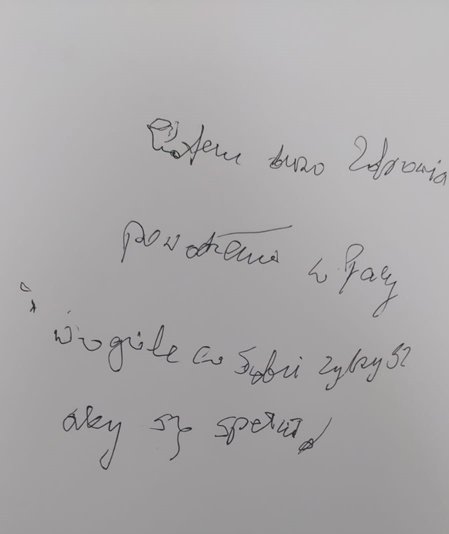 dużo Zdrowia
powodzenia w Pracy
i wogóle co Sobie życzysz
aby się spełniło